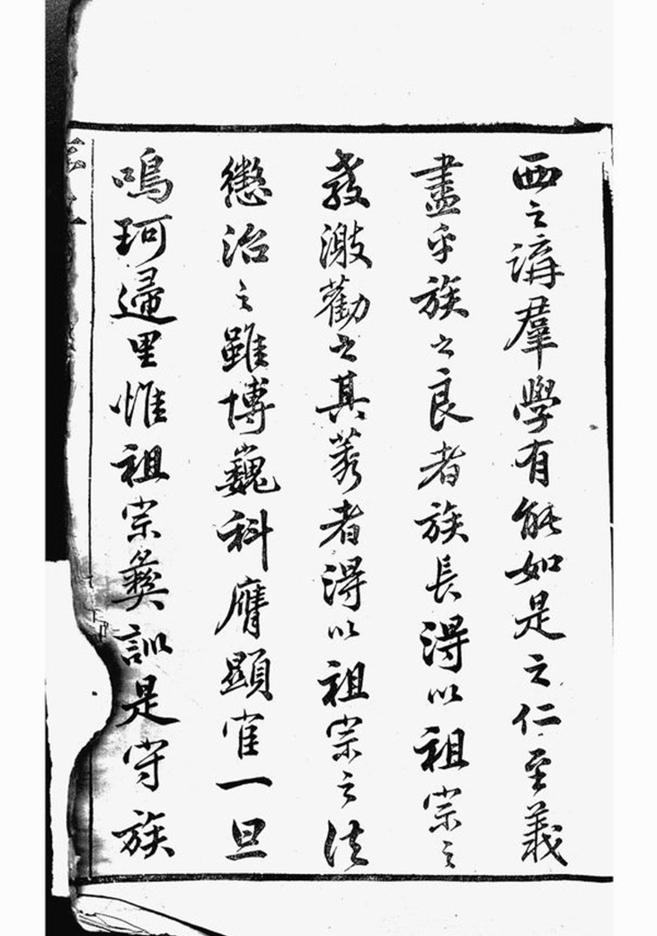 西之講羣學有能如是之仁至義
盡乎族之良者族長得以祖宗之
教激勸之其莠者得以祖宗之法
懲治之雖博巍科膺顯宦一旦
鳴珂歸里惟祖宗彝訓是守族